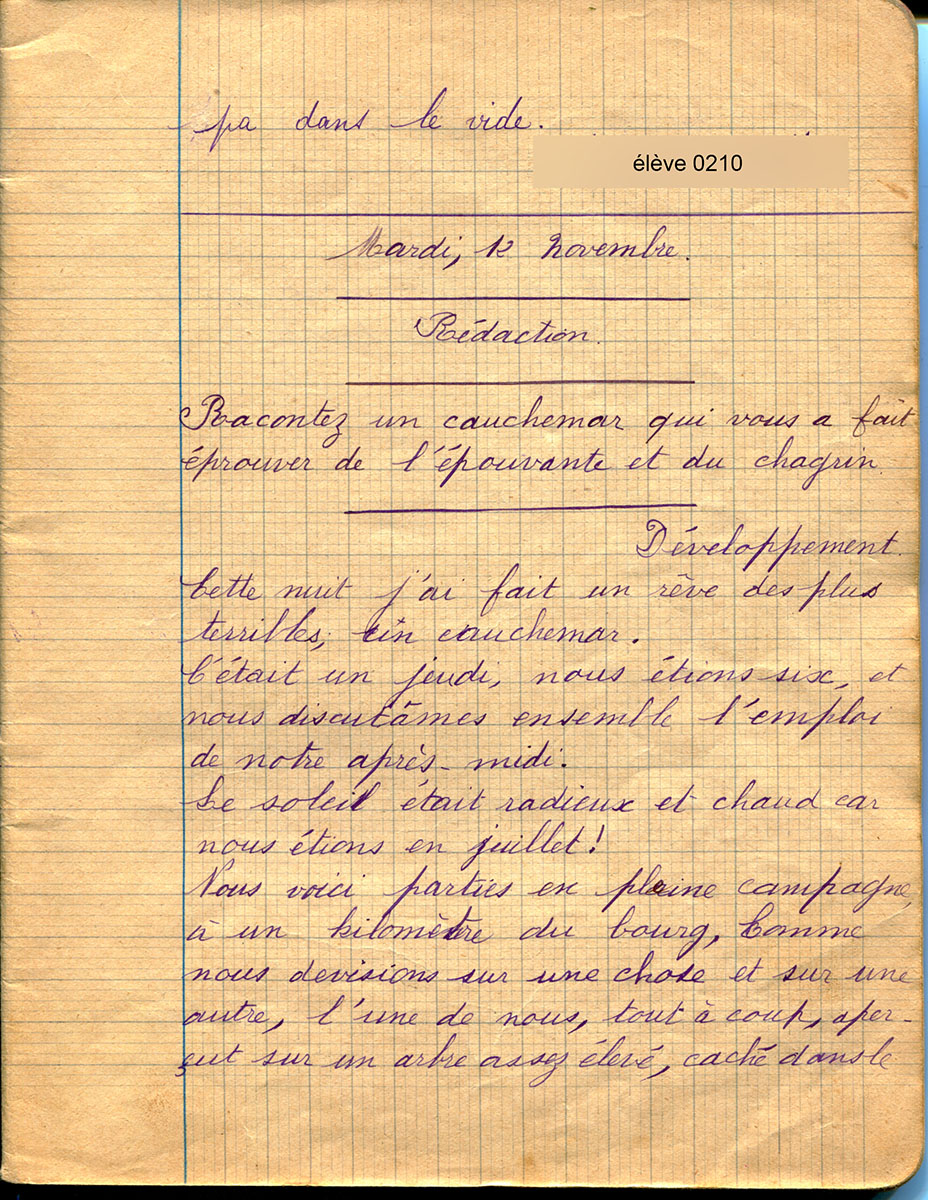 pa dans le vide.
élève 0210
Mardi, 12 Novembre.
Rédaction.
Racontez un cauchemar qui vous a fait
éprouver de l'épouvante et du chagrin
Développement.
Cette nuit j'ai fait un rêve des plus
terribles, un cauchemar.
C'était un jeudi, nous étions six, et
nous discutâmes ensemble l'emploi
de notre après-midi.
Le soleil était radieux et chaud car
nous étions en juillet!
Nous voici parties en pleine campagne,
à un kilomètre du bourg, Comme
nous devisions sur une chose et sur une
autre, l'une de nous, tout à coup, aper-
çut sur un arbre assez élevé, caché dans le